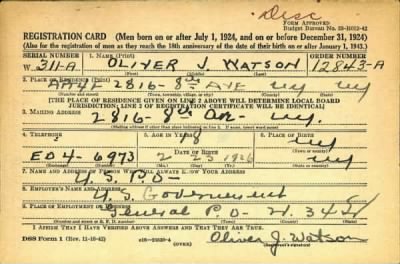 Disc
FORM APPROVED
Budget Bureau No. 33-R012-42
REGISTRATION CARD (Men born on or after July 1, 1924, and on or before December 31, 1924)
(Also for the registration of men as they reach the 18th anniversary of the date of their birth on or after January 1, 1943.)
SERIAL NUMBER
1. NAME (Print)
ORDER NUMBER
W 311-A
OLIVER J. WATSON
12843-A
(First) (Middle) (Last)
2. PLACE OF RESIDENCE (Print)
2816 - 8th AVE NY NY
(Number and street) (Town, township, village, or city) (County) (State)
[THE PLACE OF RESIDENCE GIVEN ON LINE 2 ABOVE WILL DETERMINE LOCAL BOARD
JURISDICTION; LINE 2 OF REGISTRATION CERTIFICATE WILL BE IDENTICAL]
3. MAILING ADDRESS
2816 - 8th Av - NY.
(Mailing address if other than place indicated on line 2. If same, insert word same)
4. TELEPHONE
5. AGE IN YEARS
6. PLACE OF BIRTH
18
NY
DATE OF BIRTH
(Town or county)
ED4-6973
2 23 1926
NY
(Exchange) (Number)
(Mo.) (Day) (Yr.)
(State or country)
7. NAME AND ADDRESS OF PERSON WHO WILL ALWAYS KNOW YOUR ADDRESS
U.S. P.O -
8. EMPLOYER'S NAME AND ADDRESS
U.S. Government
9. PLACE OF EMPLOYMENT OR BUSINESS
General P.O - W. 34 St
(Number and street or R. F. D. number) (Town) (County) (State)
I AFFIRM THAT I HAVE VERIFIED ABOVE ANSWERS AND THAT THEY ARE TRUE.
DSS Form 1 (Rev. 11-16-42)
(OVER)
Oliver J. Watson
(Registrant's signature)